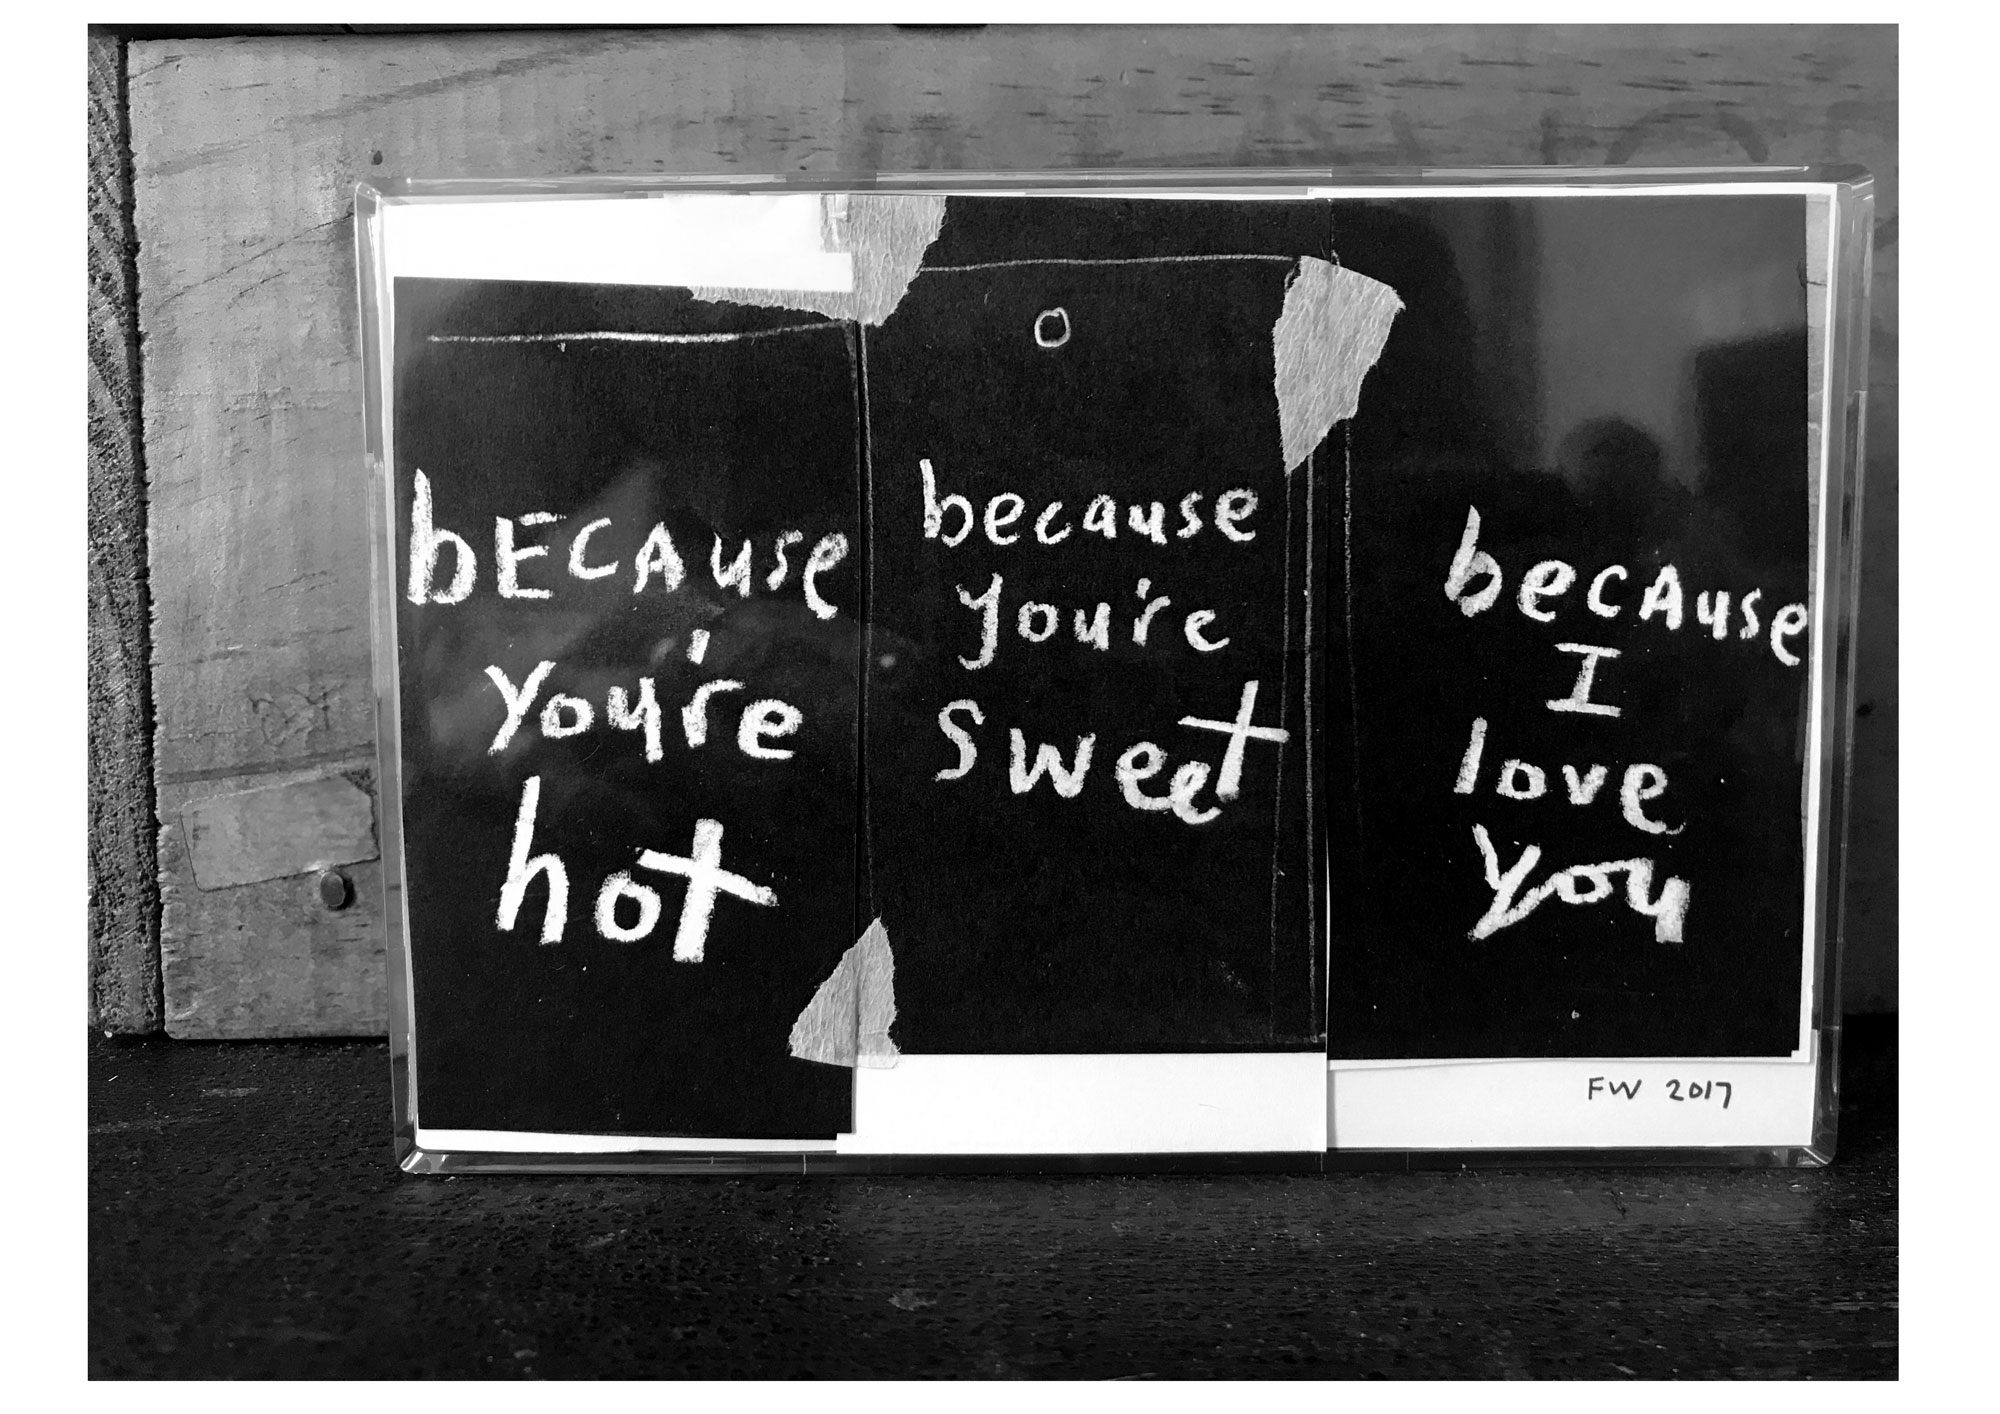 bECAuse
you're
hot
because
you're
sweet
becAuse
I
love
you
FW 2017